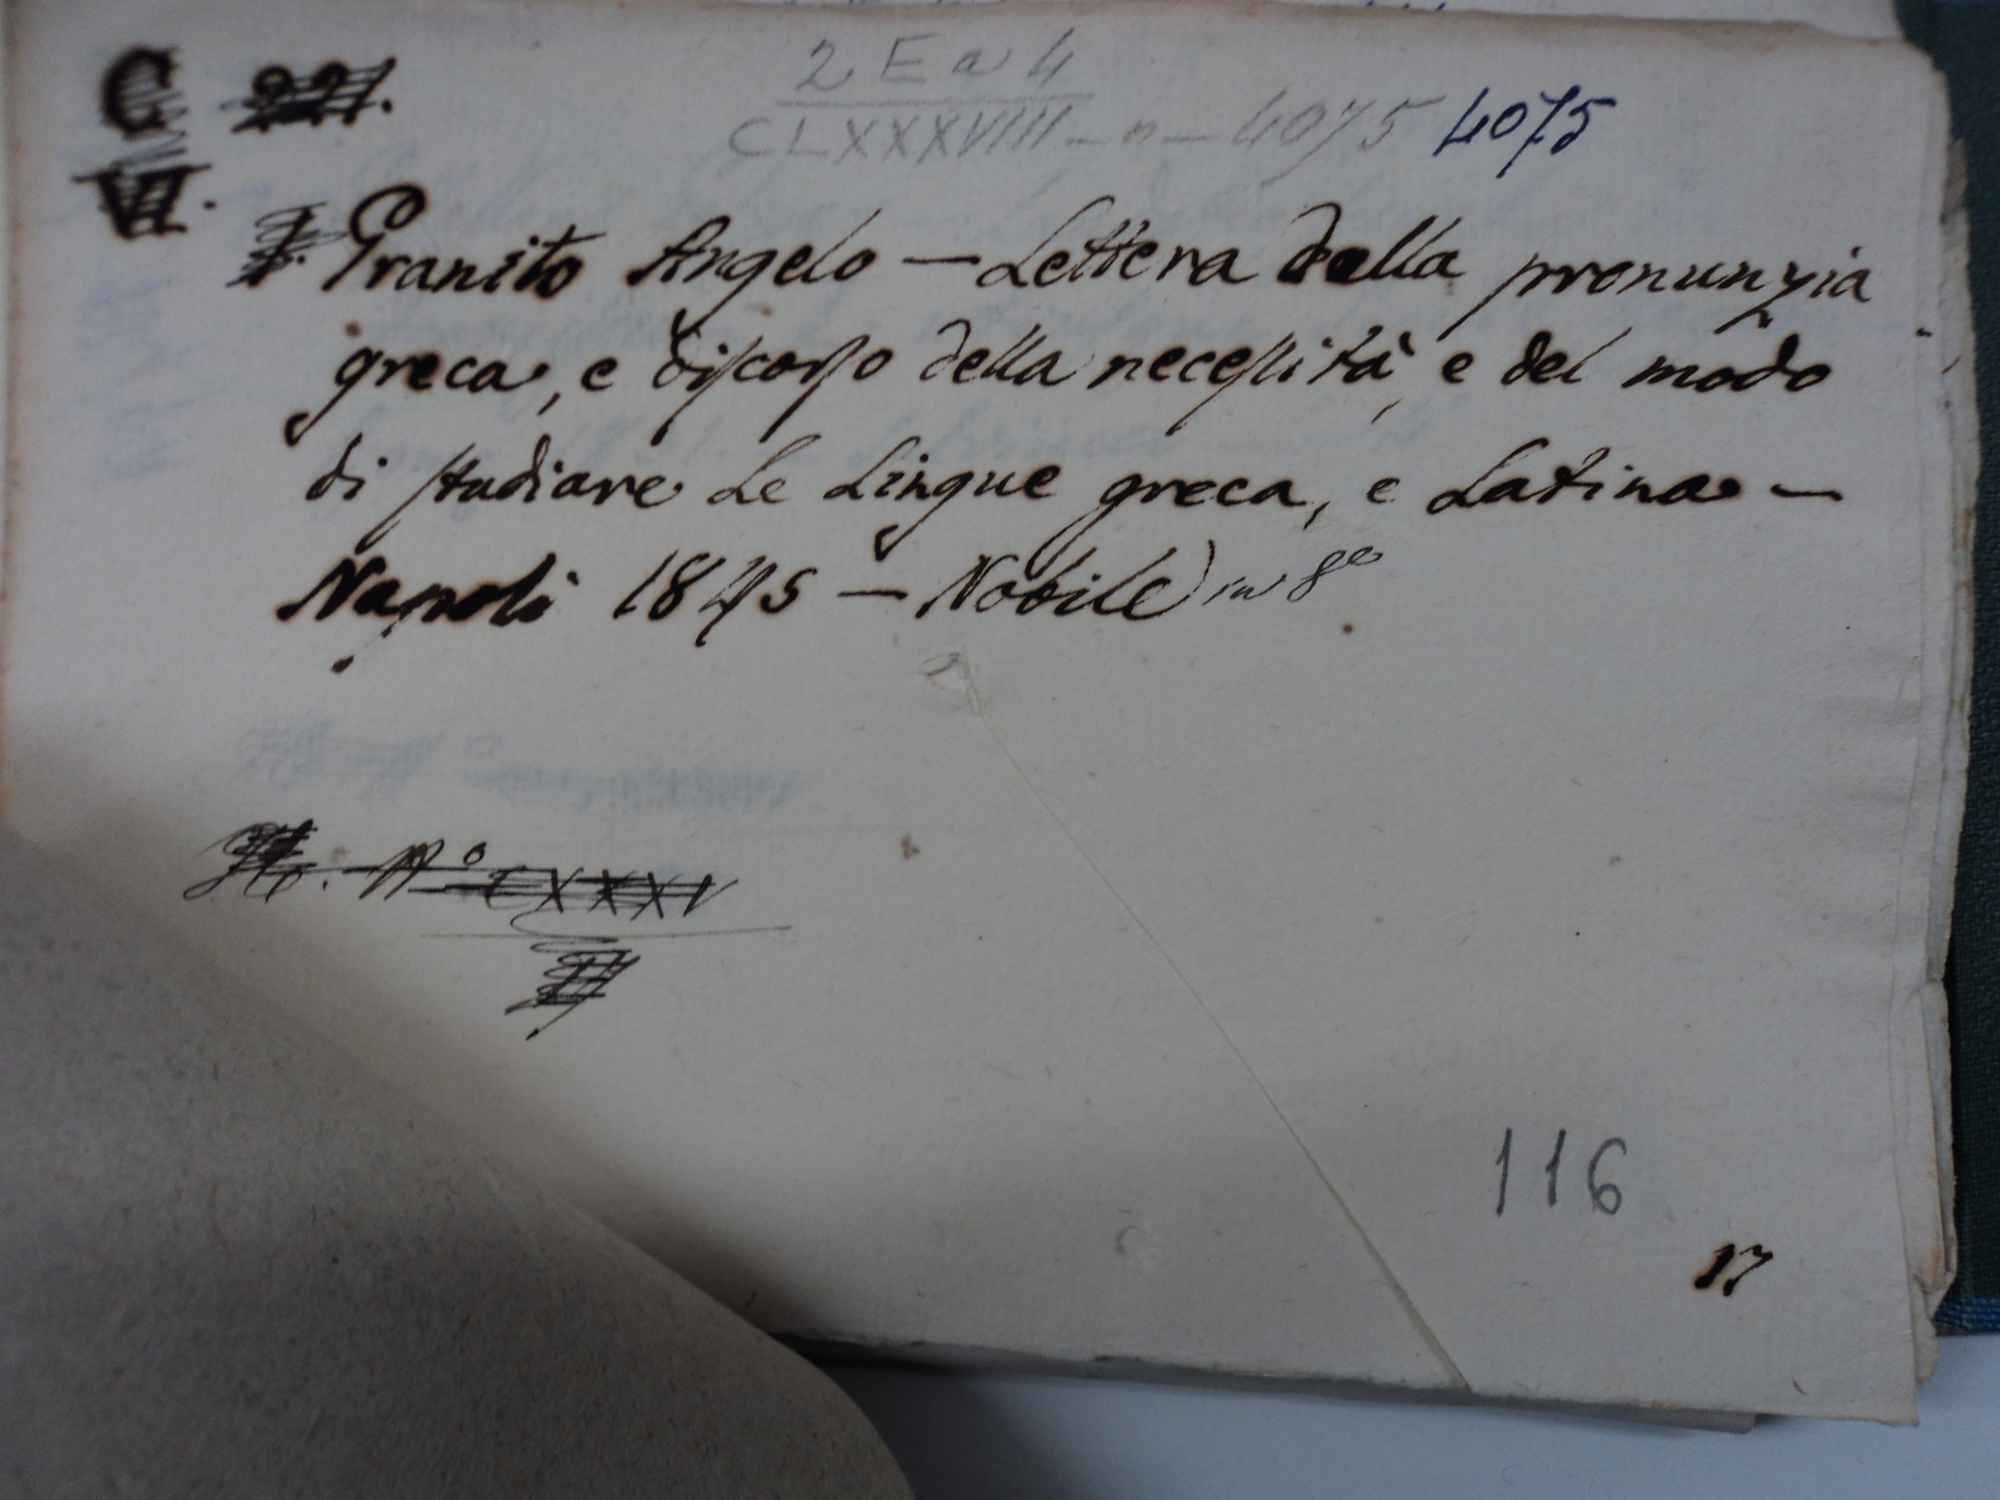 2 E a 4
C 227.
CLXXXVIII - n - 4075 4075
VI.
Granito Angelo — Lettera della pronunzia
greca, e discorso della necessità, e del modo
di studiare le lingue greca, e Latina —
Napoli 1845 — Nobile in 8º
Nº CXXXV
116
17